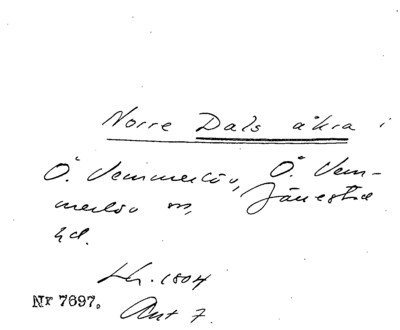 Norre Dals åkra i
Ö. Vemmerlöv, Ö. Vem-
merlöv sn, Järrestad
hd.
Lh. 1804
Nr 7697. Akt 7.